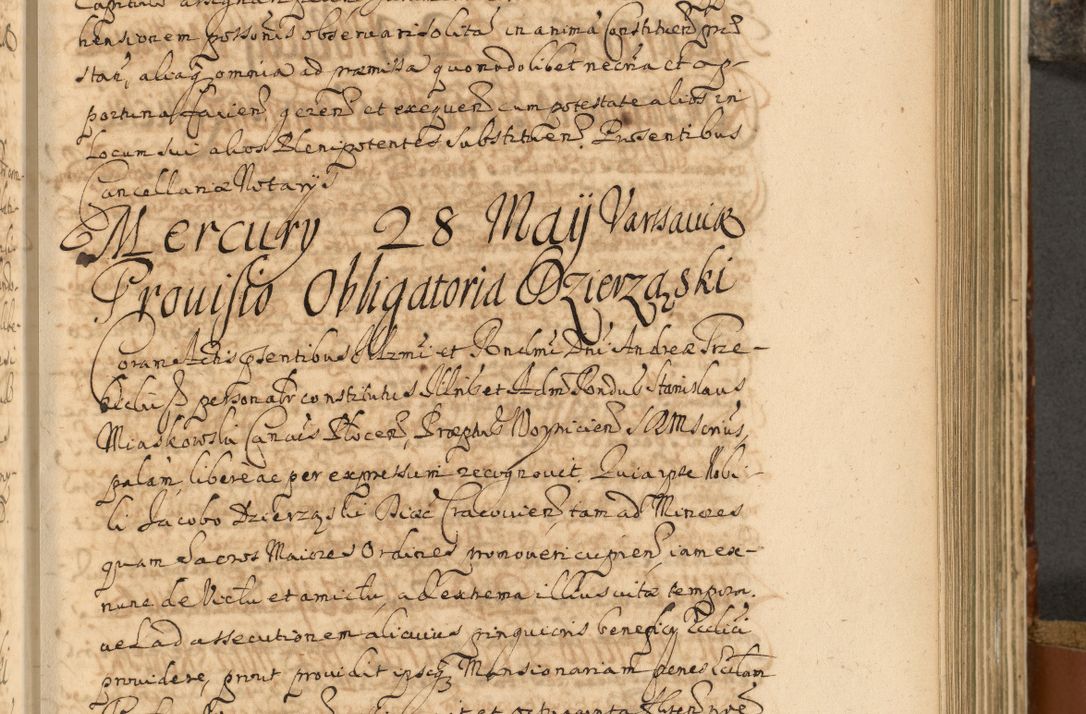 hensionem personis observari solita in anima Constituen̄ prae
stan̄, aliaq̨ omnia ad praemissa quomodolibet necria et op-
portuna facien̄ geren̄ et exequen̄ cum potestate alios in
Locum sui alios Plenipotentes substituen̄. Praesentibus
Cancellariae Notarijs
Mercurÿ 28 Maij Varsaviae
Provisio Obligatoria Dzierząski
Coram Actis psentibus Illmi et Rndmi Dni Andreae Trze-
bicki personalr constitutus Illris et Adm Rondus Stanislaus
Miaskowski Cancus Plocen̄, Praeptus Woynicien̄ SRM
palam, libere ac per expressum recognovit. Quia ipse Nobi-
li Jacobo Dzierząski Diaec Cracovien̄, tam ad Minores
quam Sacros Maiores Ordines promoveri cupien̄, iam ex-
nunc de Victu et amictu, ad extrema illius vitae tempora.
vel ad assecutionem alicuius pinguioris beneficÿ Ecclici
providere, prout providit ipsq̨ Mansionariam penes Ecclam